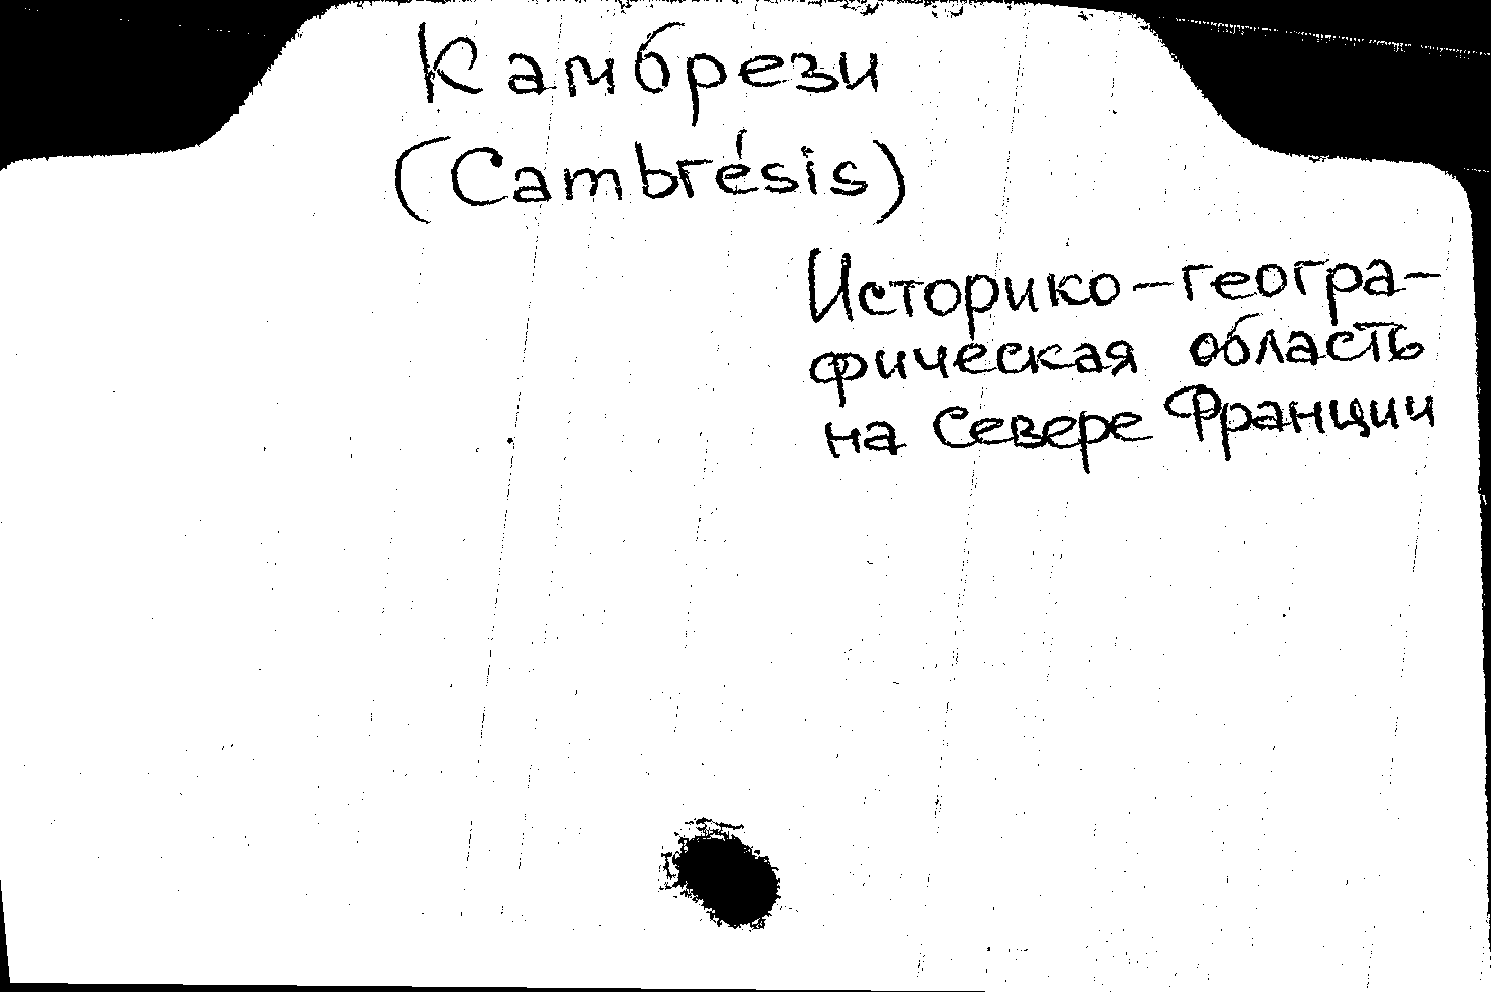 Камбрези
(Cambrésis)
Историко-геогра-
фическая область
на Севере Франции